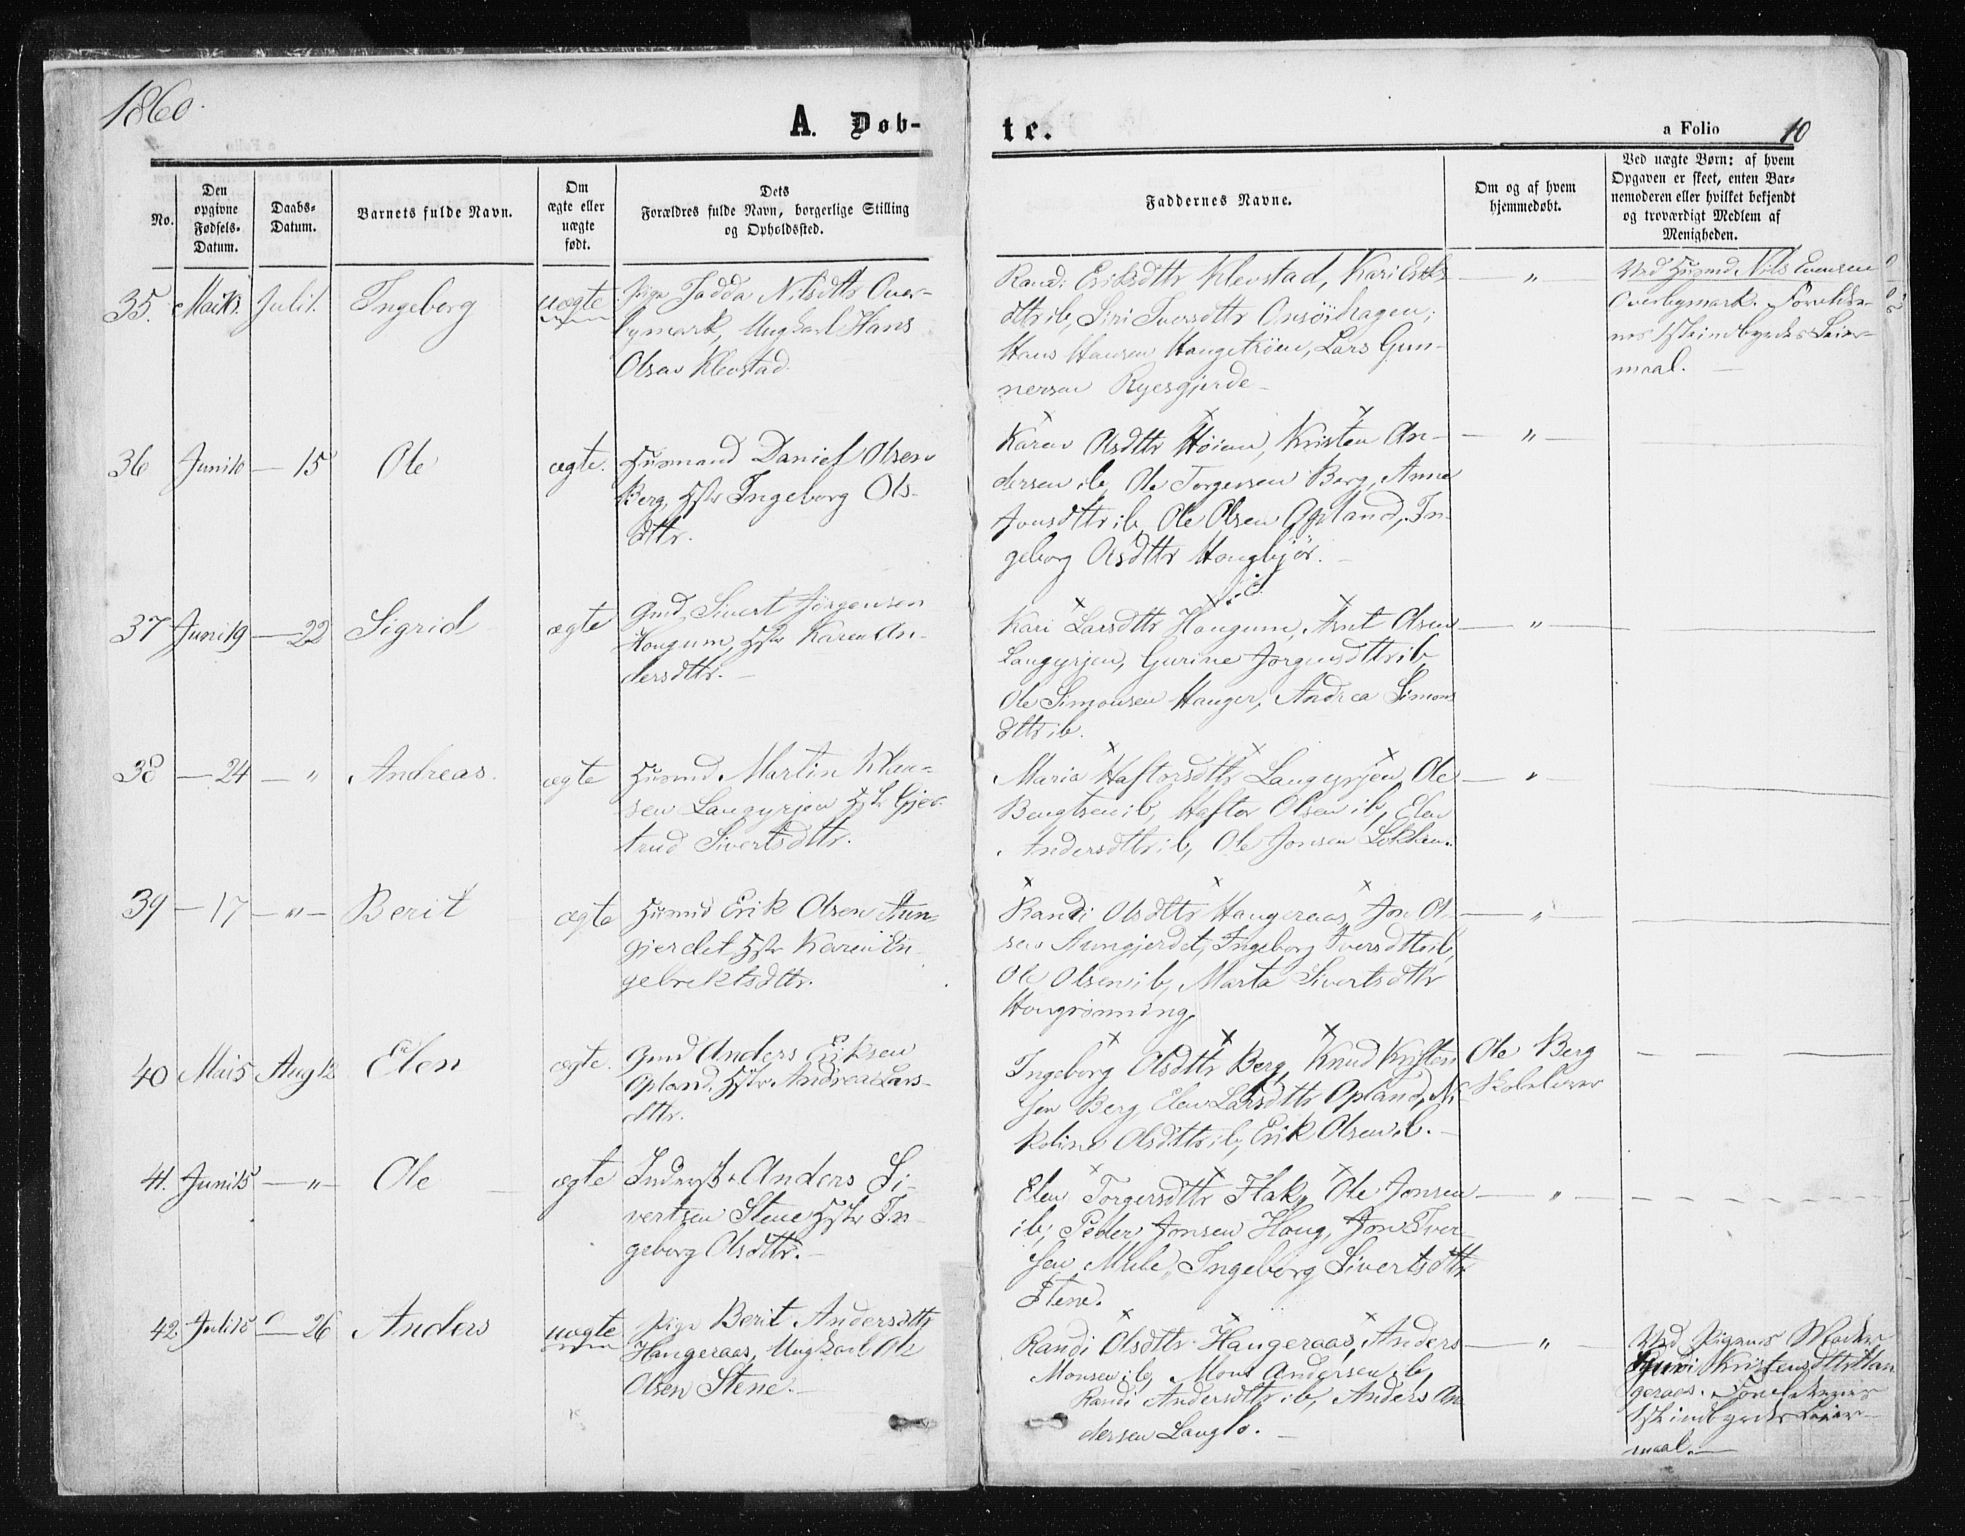 1860.
A. Døb-
te.
a Folio 10
No.
Den opgivne Fødsels-Datum.
Daabs-Datum.
Barnets fulde Navn.
Om ægte eller uægte født.
Dets Forældres fulde Navn, borgerlige Stilling og Opholdssted.
Faddernes Navne.
Om og af hvem hjemmedøbt.
Ved uægte Børn: af hvem Opgaven er skeet, enten Barnemoderen eller hvilket bekjendt og troværdigt Medlem af Menigheden.
35. Juli 1. Ingeborg uægte
Pige Nilsdttr Over-
bymark, Ungkarl Hans
Olsen Klevstad.
Randi Eriksdttr Klevstad, Kari Eriks
dttr ib, Siri Iversdttr
Hans Hansen Haugetrøen, Lars Gun-
nersen Ryesgjerde
— " —
Ved Husmd Nils Evensen
Overbymark. Foreldre-
nes 1ste indbyrdes Leier-
maal. —
36 Juni 10 — 15 Ole ægte.
Husmand Daniel Olsen
Berg, Hstr Ingeborg Ols-
dttr.
Karen Olsdttr Høiem, Kristen An-
dersen ib, Ole Torgersen Berg, Anne
Jonsdttr ib, Ole Olsen Opland, In-
geborg Olsdttr Haugbjør. —
— " —
37 Juni 19 — 22 Sigrid ægte
Gmd Sivert Jørgensen
Haugum, Hstr Karen An-
dersdttr. —
Kari Larsdttr Haugum, Arnt Olsen
Langørjen, Gurine Jørgensdttr ib,
Ole Simonsen Hauger, Andrea Simons
dttr ib.
— " —
38 — 24 — " Andreas. ægte
Husmd Martin
sen Langørjen Hstr Gjer-
trud Sivertsdttr.
Maria Haftorsdttr Langørjen, Ole
Bengtsen ib, Haftor Olsen ib, Elen
Andersdttr ib, Ole Jonsen Løkken.
— " —
39 — 17 — " — Berit ægte
Husmd Erik Olsen Aun-
gjerdet Hstr Karen En-
gebrektsdttr.
Randi Olsdttr Haugeraas, Jon Ol-
sen Aungjerdet, Ingeborg Iversdttr ib,
Ole Olsen ib, Marta Sivertsdttr
Haugrønning
— " —
40 Mai 5 Aug 12 Elen ægte.
Gmd Anders Eriksen
Opland, Hstr Andrea Lars-
dttr.
Ingeborg Olsdttr Berg, Knud Kristen
sen Berg, Elen Larsdttr Opland, Ni-
koline Olsdttr ib, Erik Olsen ib. —
Ole Berg
Skolelærer
41. Juni 15 — " — Ole ægte
Inderst Anders Si-
vertsen Stene Hstr In-
geborg Olsdttr. —
Elen Torgersdttr Flak, Ole Jonsen
ib, Peder Jonsen Haug, Jon Iver-
sen Mule, Ingeborg Sivertsdttr
Stene.
— " —
42 Juli 15 — 26 Anders uægte
Pige Berit Andersdttr
Haugeraas, Ungkarl Ole
Olsen Stene. —
Randi Olsdttr Haugeraas, Anders
Monsen ib, Mons Andersen ib,
Randi Andersdttr ib, Anders An
dersen Langlo. —
— " —
Ved Pigens Moder
Kristensdttr Hau
geraas. Foreldrenes
1ste indbyrdes Leier-
maal. —